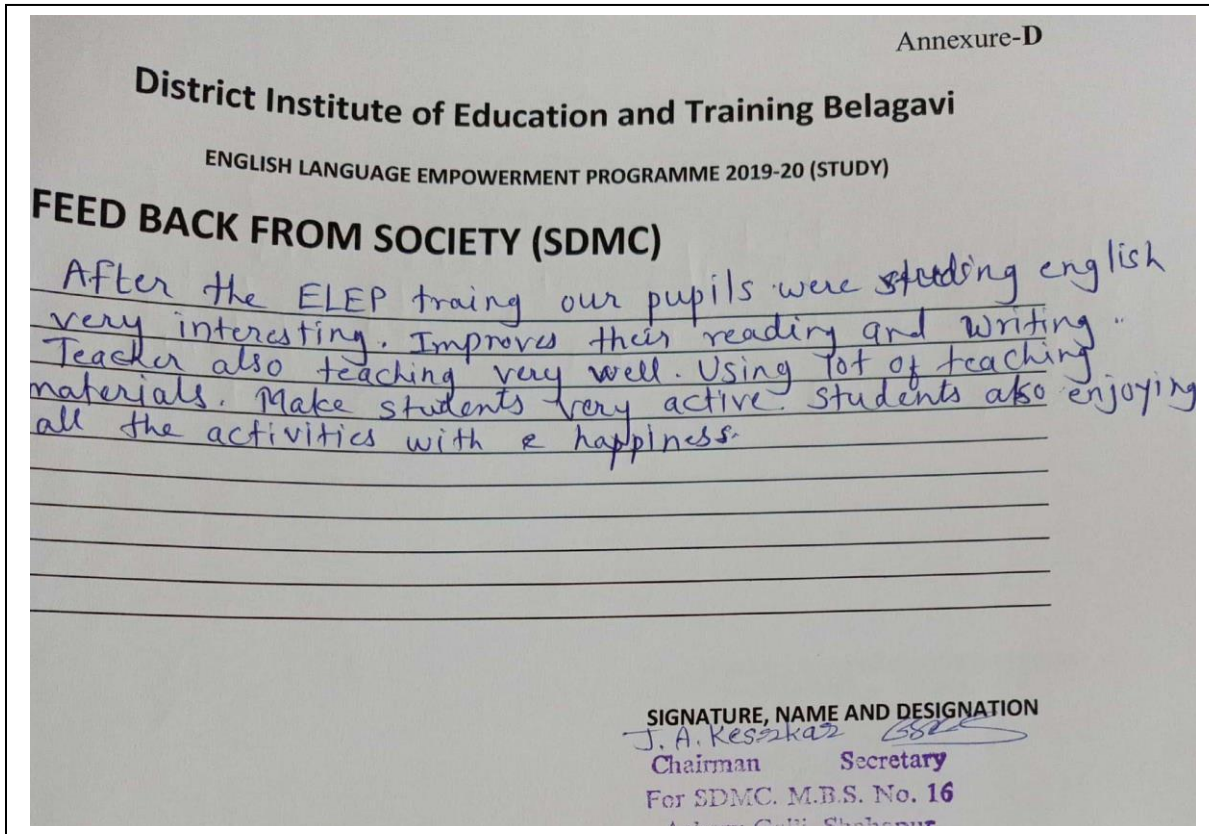 Annexure-D
District Institute of Education and Training Belagavi
ENGLISH LANGUAGE EMPOWERMENT PROGRAMME 2019-20 (STUDY)
FEED BACK FROM SOCIETY (SDMC)
After the ELEP traing our pupils were studing english
very interesting. Improves their reading and writing.
Teacher also teaching very well. Using lot of teaching
materials. Make students very active. Students also enjoying
all the activities with happiness.
SIGNATURE, NAME AND DESIGNATION
J. A.
Chairman Secretary
For SDMC. M.B.S. No. 16